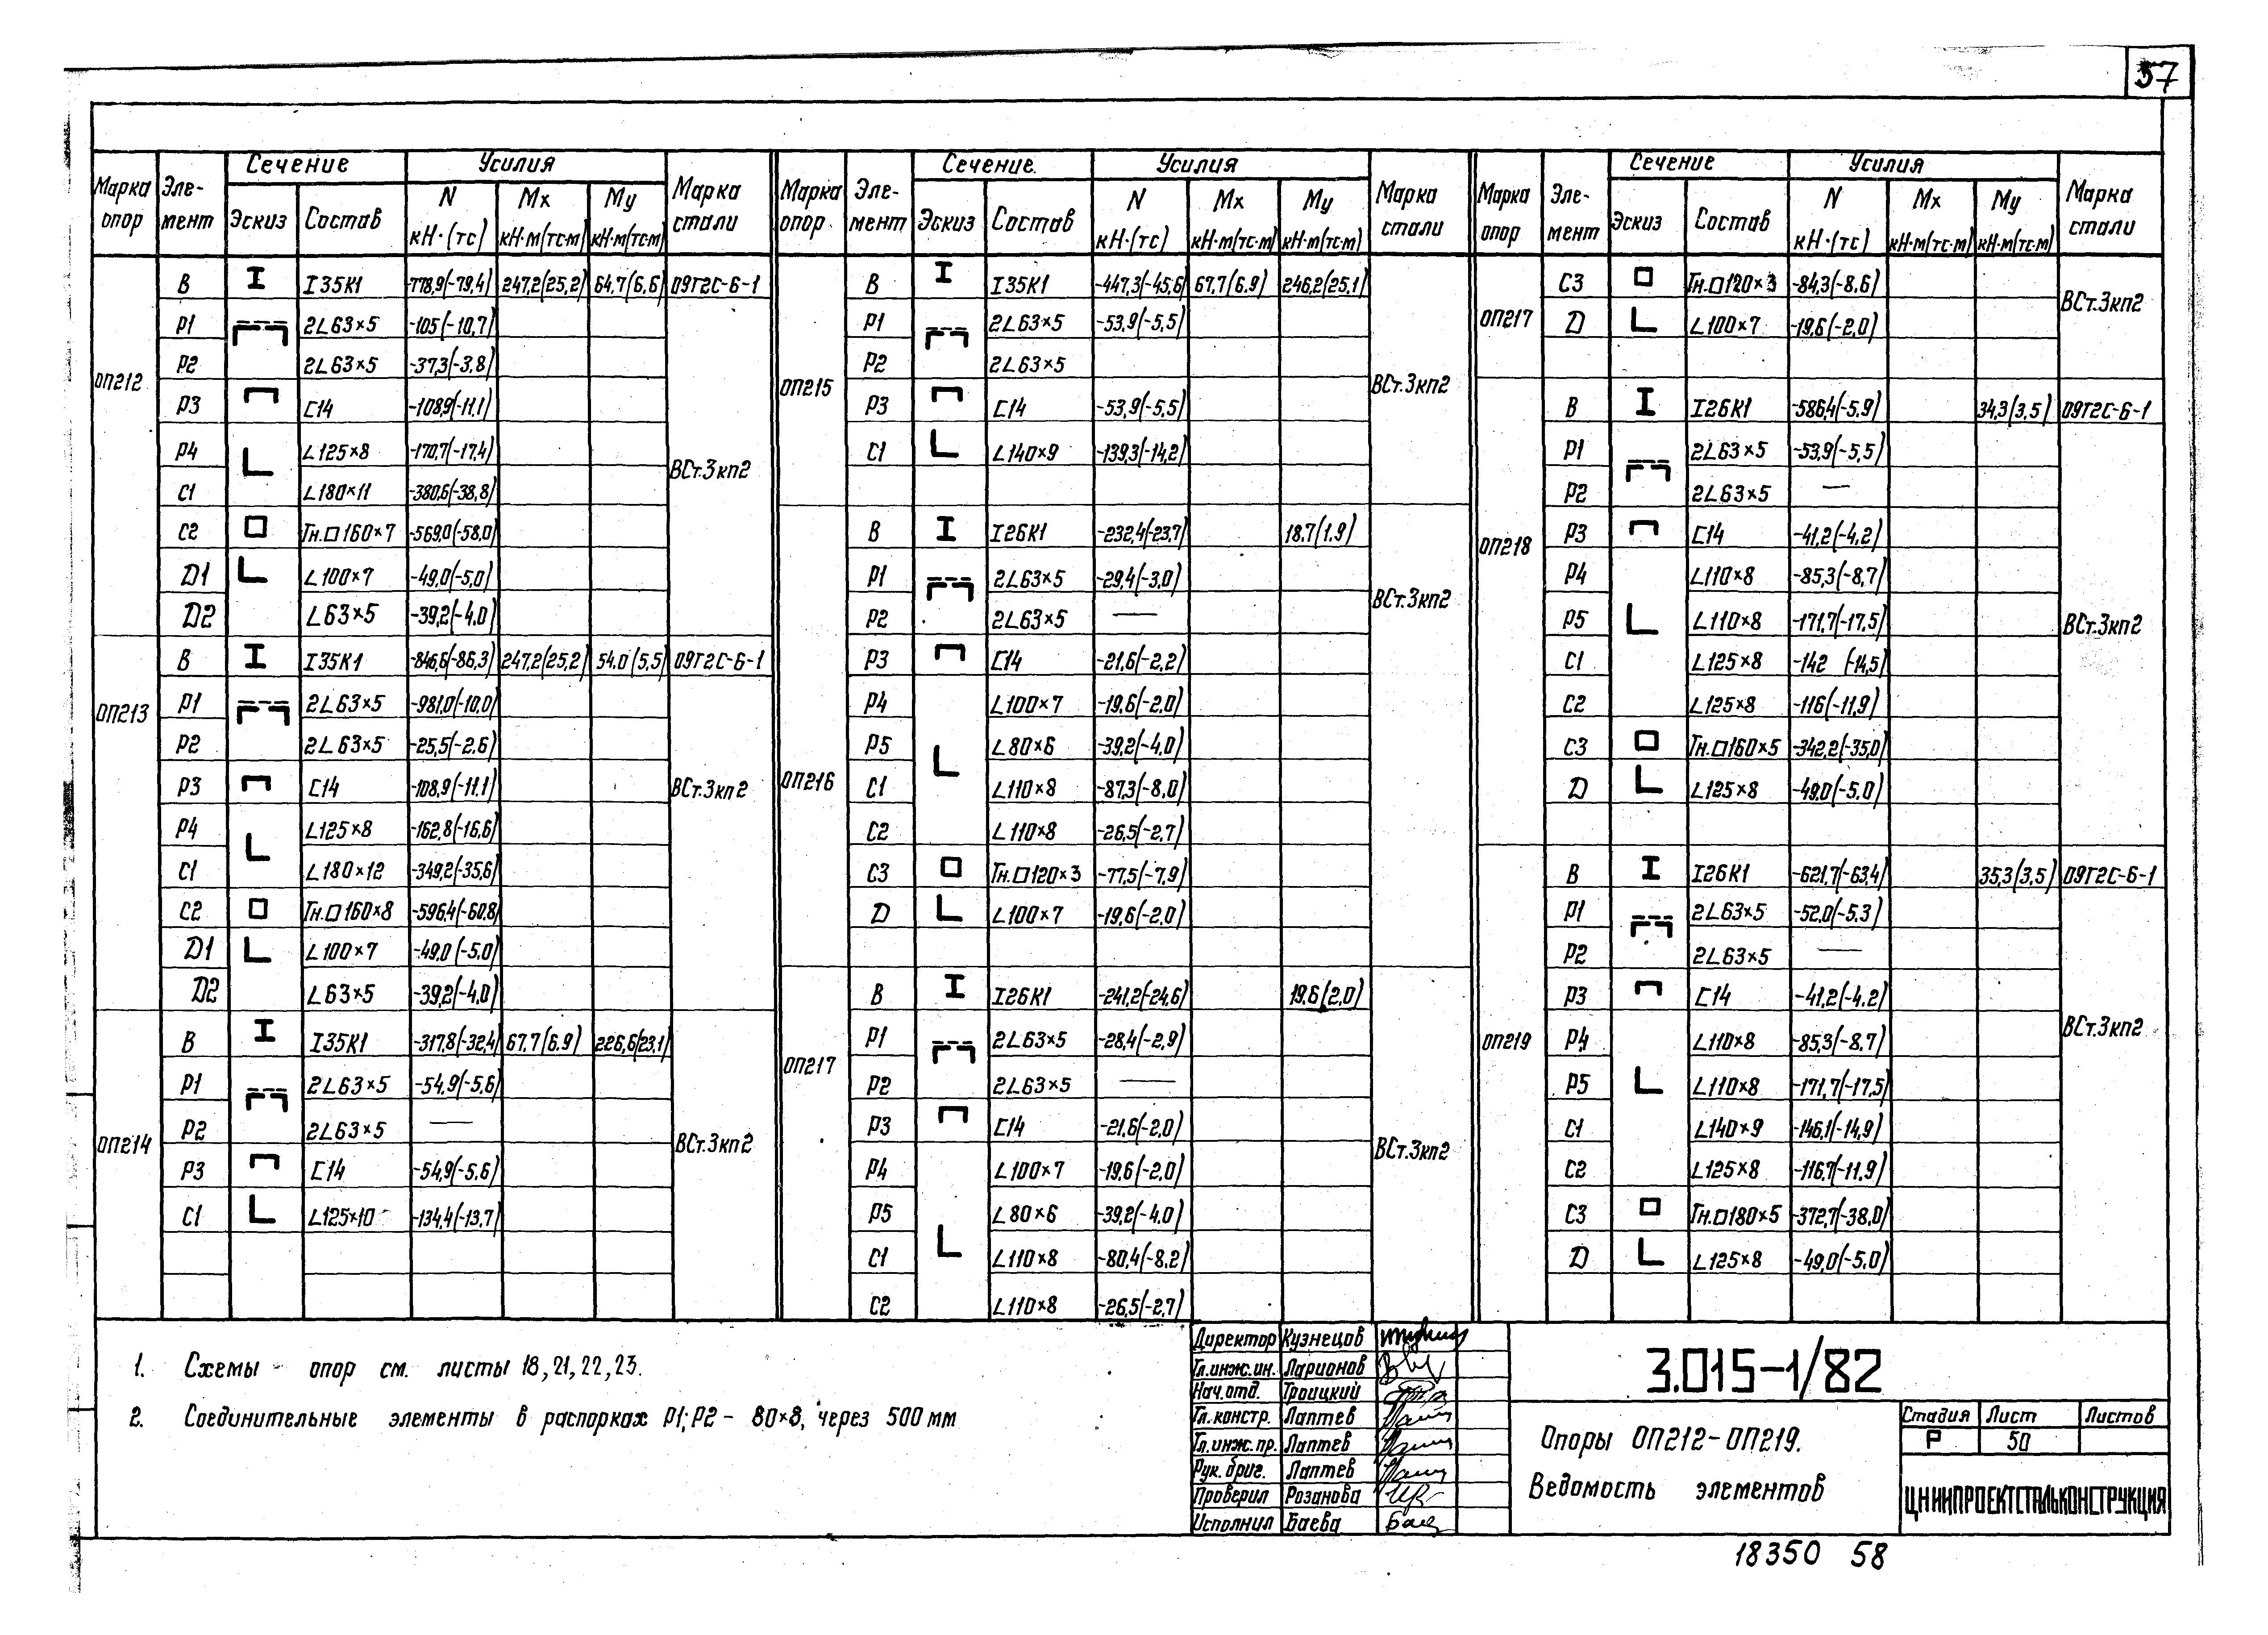 57
Марка опор Эле-мент Сечение Усилия Марка стали
Эскиз Состав N кН·(тс) Mx кН·м(тс·м) My кН·м(тс·м)
ОП212
В I35К1 -778,9(-79,4) 247,2(25,2) 64.7(6,6) 09Г2С-6-1
Р1 2L63×5 -105(-10,7)
Р2 2L63×5 -37,3(-3,8)
Р3 С14 -108,9(-11,1)
Р4 L125×8 -170,7(-17,4)
ВСт.3кп2
С1 L180×11 -380,6(-38,8)
С2 Гн.□160×7 -569,0(-58,0)
D1 L100×7 -49,0(-5,0)
D2 L63×5 -39,2(-4.0)
ОП213
В I35К1 -846,6(-86,3) 247,2(25,2) 54.0(5,5) 09Г2С-6-1
Р1 2L63×5 -981,0(-10,0)
Р2 2L63×5 -25,5(-2.6)
Р3 С14 -108,9(-11.1)
ВСт.3кп2
Р4 L125×8 -162,8(-16,6)
С1 L180×12 -349,2(-35,6)
С2 Гн.□160×8 -596,4(-60,8)
D1 L100×7 -49,0(-5,0)
D2 L63×5 -39,2(-4,0)
ОП214
В I35К1 -317,8(-32,4) 67,7(6.9) 226,6(23,1)
Р1 2L63×5 -54,9(-5,6)
Р2 2L63×5 —
ВСт.3кп2
Р3 С14 -54,9(-5,6)
С1 L125×10 -134,4(-13,7)
Марка опор Эле-мент Сечение. Усилия Марка стали
Эскиз Состав N кН·(тс) Mx кН·м(тс·м) My кН·м(тс·м)
ОП215
В I35К1 -447,3(-45,6) 67,7(6.9) 246,2(25,1)
Р1 2L63×5 -53,9(-5,5)
Р2 2L63×5
ВСт.3кп2
Р3 С14 -53,9(-5,5)
С1 L140×9 -139,3(-14,2)
ОП216
В I26К1 -232,4(-23,7) 18.7(1.9)
Р1 2L63×5 -29,4(-3,0)
ВСт.3кп2
Р2 2L63×5 —
Р3 С14 -21,6(-2,2)
Р4 L100×7 -19,6(-2,0)
Р5 L80×6 -39,2(-4,0)
С1 L110×8 -87,3(-8,0)
С2 L110×8 -26,5(-2,7)
С3 Гн.□120×3 -77,5(-7,9)
D L100×7 -19,6(-2,0)
ОП217
В I26К1 -241,2(-24,6) 19.6(2,0)
Р1 2L63×5 -28,4(-2,9)
Р2 2L63×5 —
Р3 С14 -21,6(-2,0)
ВСт.3кп2
Р4 L100×7 -19,6(-2,0)
Р5 L80×6 -39,2(-4.0)
С1 L110×8 -80,4(-8,2)
С2 L110×8 -26,5(-2,7)
Марка опор Эле-мент Сечение Усилия Марка стали
Эскиз Состав N кН·(тс) Mx кН·м(тс·м) My кН·м(тс·м)
ОП217
С3 Гн.□120×3 -84,3(-8,6)
ВСт.3кп2
D L100×7 -19,6(-2,0)
ОП218
В I26К1 -586,4(-5,9) 34,3(3,5) 09Г2С-6-1
Р1 2L63×5 -53,9(-5,5)
Р2 2L63×5 —
Р3 С14 -41,2(-4,2)
Р4 L110×8 -85,3(-8,7)
Р5 L110×8 -171,7(-17,5)
ВСт.3кп2
С1 L125×8 -142 (-14,5)
С2 L125×8 -116(-11,9)
С3 Гн.□160×5 -342,2(-35,0)
D L125×8 -49,0(-5.0)
ОП219
В I26К1 -621,7(-63,4) 35,3(3,5) 09Г2С-6-1
Р1 2L63×5 -52,0(-5.3)
Р2 2L63×5 —
Р3 С14 -41,2(-4.2)
ВСт.3кп2
Р4 L110×8 -85,3(-8.7)
Р5 L110×8 -171,7(-17,5)
С1 L140×9 -146,1(-14,9)
С2 L125×8 -116,7(-11.9)
С3 Гн.□180×5 -372,7(-38,0)
D L125×8 -49,0(-5.0)
1. Схемы опор см. листы 18,21,22,23.
2. Соединительные элементы в распорках Р1; Р2 - 80×8, через 500 мм
Директор Кузнецов
Гл.инж.ин. Ларионов
Нач.отд. Троицкий
Гл.констр. Лаптев
Гл.инж.пр. Лаптев
Рук.бриг. Лаптев
Проверил Розанова
Исполнил Баева
3.015-1/82
Опоры ОП212-ОП219.
Ведомость элементов
Стадия Лист Листов
Р 50
ЦНИИПРОЕКТСТАЛЬКОНСТРУКЦИЯ
18350 58